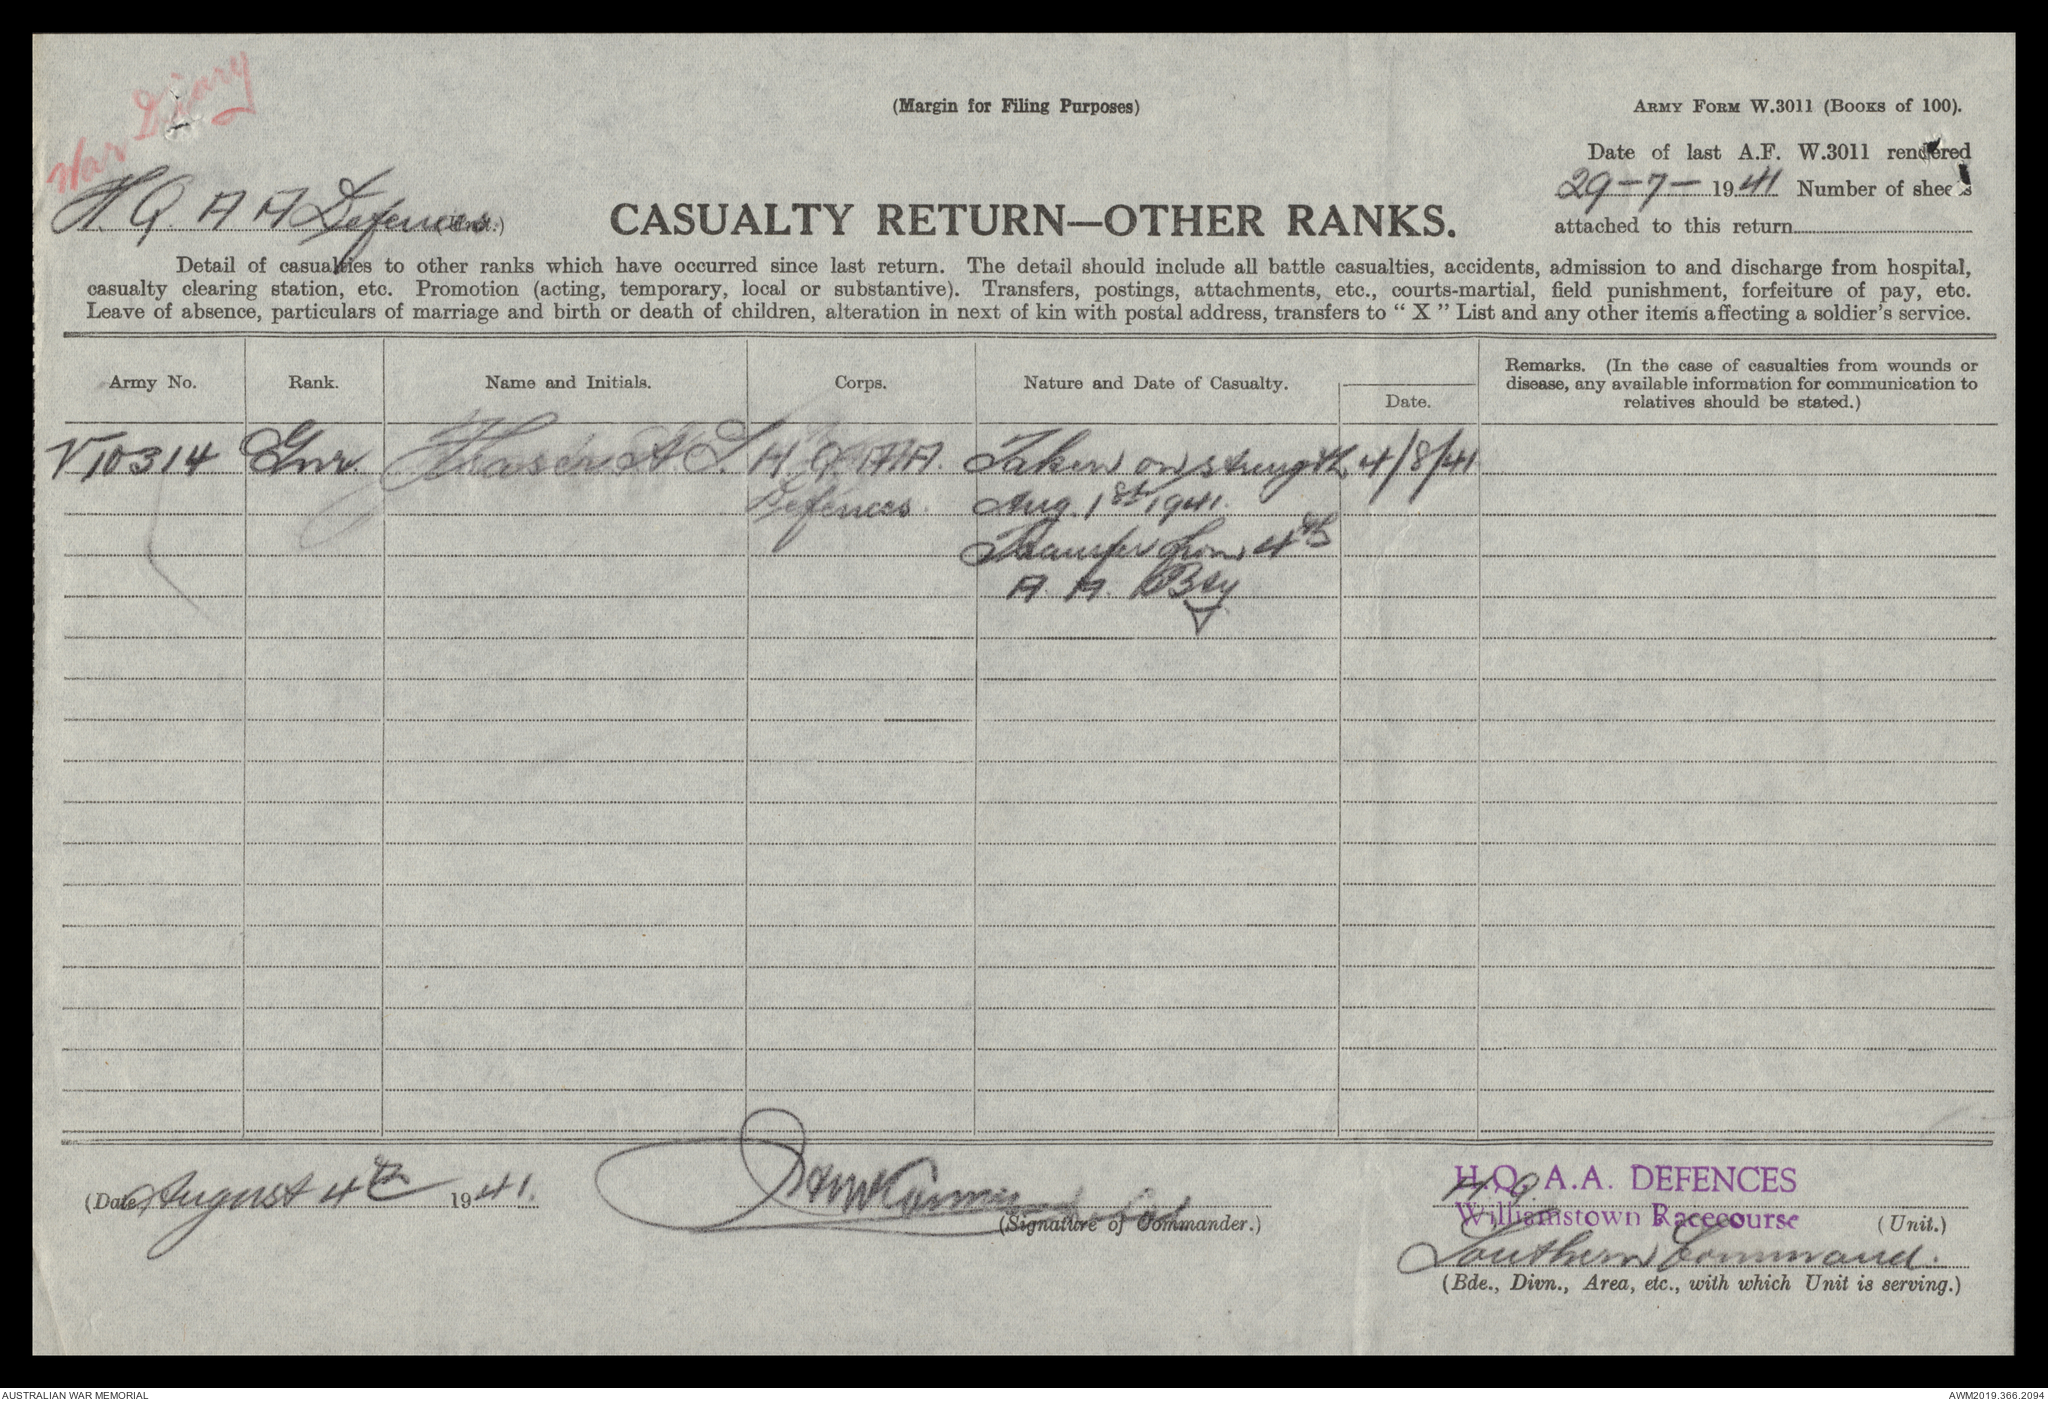 War Diary
(Margin for Filing Purposes)
ARMY FORM W.3011 (BOOKS OF 100).
Date of last A.F. W.3011 rendered
29-7-1941 Number of sheets
attached to this return
H.Q. A A Defences
CASUALTY RETURN—OTHER RANKS.
Detail of casualties to other ranks which have occurred since last return. The detail should include all battle casualties, accidents, admission to and discharge from hospital,
casualty clearing station, etc. Promotion (acting, temporary, local or substantive). Transfers, postings, attachments, etc., courts-martial, field punishment, forfeiture of pay, etc.
Leave of absence, particulars of marriage and birth or death of children, alteration in next of kin with postal address, transfers to " X " List and any other items affecting a soldier's service.
Army No. Rank. Name and Initials. Corps. Nature and Date of Casualty. Date. Remarks. (In the case of casualties from wounds or
disease, any available information for communication to
relatives should be stated.)
V10314 Gnr. Fraser A S. H Q AA. Taken on strength 4/8/41
Defences. Aug. 1st 1941.
Transfer from 4th
A. A. Bty
(Date) August 4th 1941.
(Signature of Commander.)
H.Q. A.A. DEFENCES
H.Q.
Williamstown Racecourse (Unit.)
Southern Command.
(Bde., Divn., Area, etc., with which Unit is serving.)
AUSTRALIAN WAR MEMORIAL
AWM2019.366.2094